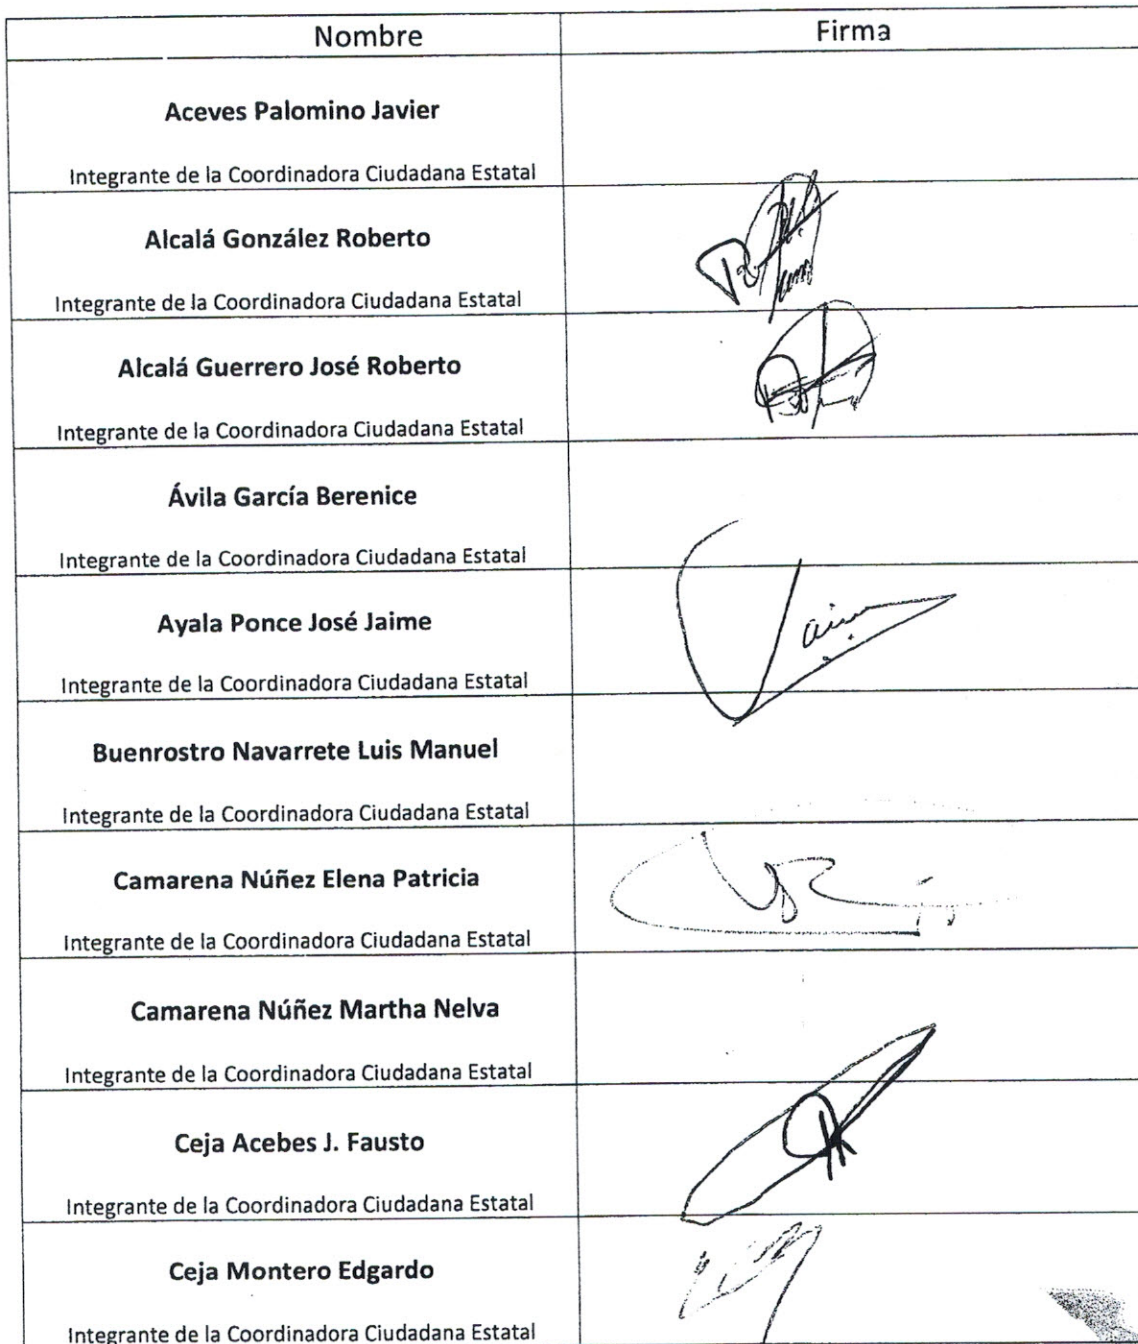 Nombre Firma
Aceves Palomino Javier
Integrante de la Coordinadora Ciudadana Estatal
Alcalá González Roberto
Integrante de la Coordinadora Ciudadana Estatal
Alcalá Guerrero José Roberto
Integrante de la Coordinadora Ciudadana Estatal
Ávila García Berenice
Integrante de la Coordinadora Ciudadana Estatal
Ayala Ponce José Jaime
Integrante de la Coordinadora Ciudadana Estatal
Buenrostro Navarrete Luis Manuel
Integrante de la Coordinadora Ciudadana Estatal
Camarena Núñez Elena Patricia
Integrante de la Coordinadora Ciudadana Estatal
Camarena Núñez Martha Nelva
Integrante de la Coordinadora Ciudadana Estatal
Ceja Acebes J. Fausto
Integrante de la Coordinadora Ciudadana Estatal
Ceja Montero Edgardo
Integrante de la Coordinadora Ciudadana Estatal